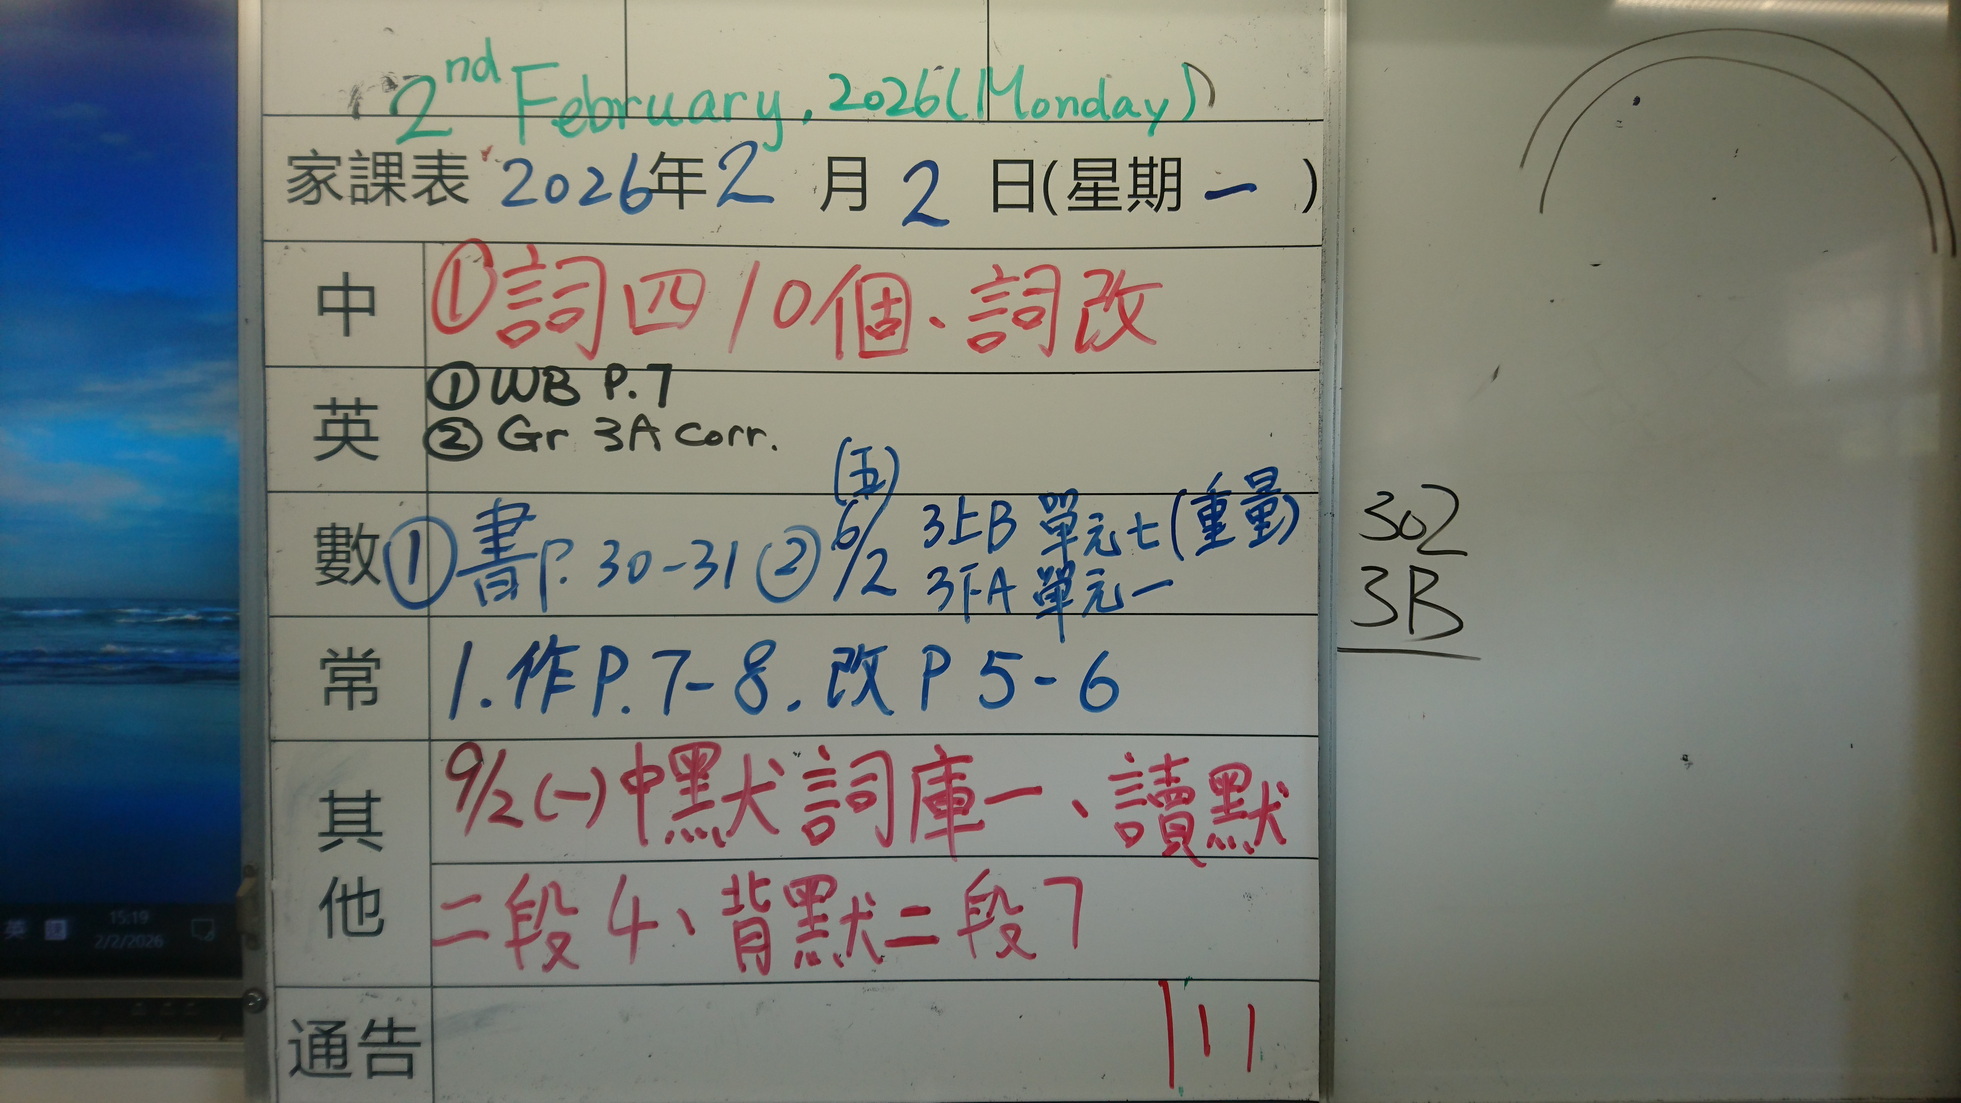 2nd February, 2026 (Monday)
家課表 2026年2月2日(星期一)
中 ①詞四10個、詞改
英 ①WB P.7
②Gr 3A corr.
數 ①書P.30-31 ②6/2 (五) 3上B 單元七(重量)
3下A 單元一
常 1.作P.7-8.改P5-6
其他 9/2(一)中默詞庫一、讀默
二段4、背默二段7
通告
302
3B
英
15:19
2/2/2026